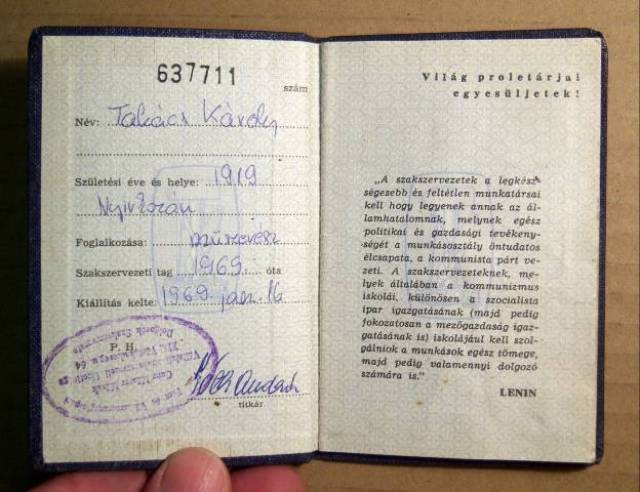 637711
szám
Név: Takács Károly
Születési éve és helye: 1919
Foglalkozása: műszerész
Szakszervezeti tag 1969. óta
Kiállítás kelte: 1969. jan. 16
P. H.
titkár
Világ proletárjai
egyesüljetek!
„A szakszervezetek a legkész-
ségesebb és feltétlen munkatársai
kell hogy legyenek annak az ál-
lamhatalomnak, melynek egész
politikai és gazdasági tevékeny-
ségét a munkásosztály öntudatos
élcsapata, a kommunista párt ve-
zeti. A szakszervezeteknek, me-
lyek általában a kommunizmus
iskolái, különösen a szocialista
ipar igazgatásának (majd pedig
fokozatosan a mezőgazdaság igaz-
gatásának is) iskolájául kell szol-
gálniok a munkások egész tömege,
majd pedig valamennyi dolgozó
számára is."
LENIN